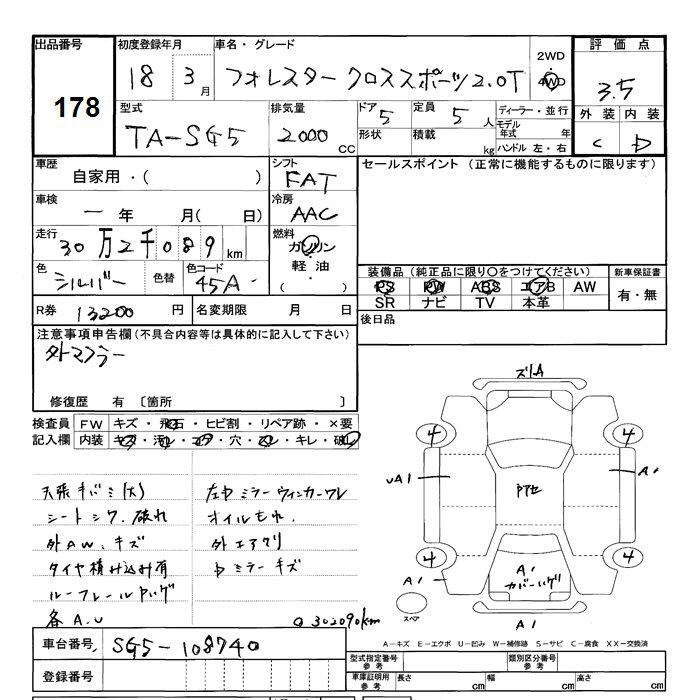 出品番号 初度登録年月 車名・グレード 2WD 評価点
178 18 3月 フォレスター クロススポーツ2.0T 4WD 3.5
型式 排気量 ドア 5 定員 5人 ディーラー・並行 外装 内装
TA-SG5 2000CC 形状 積載 kg モデル年式 年 C D
ハンドル 左・右
車歴 シフト セールスポイント (正常に機能するものに限ります)
自家用・( ) FAT
車検 冷房
一年 月( 日) AAC
走行 燃料
30万2千089km ガソリン
色 色替 色コード 軽油
シルバー 45A- ( )
装備品 (純正品に限り○をつけてください) 新車保証書
PS PW ABS エアB AW 有・無
SR ナビ TV 本革
R券 13200円 名変期限 月 日 後日品
注意事項申告欄(不具合内容等は具体的に記入して下さい)
外マフラー
修復歴 有 〔箇所 〕
検査員記入欄 FW キズ・飛石・ヒビ割・リペア跡・×要
内装 キズ・汚れ・コゲ・穴・スレ・キレ・破れ
天張キバミ(大) 左ドミラーウィンカーワレ
シートシワ.破れ オイルもれ.
外AW.キズ 外エアクリ
タイヤ積み込み有 ドミラーキズ
ルーフレール
各A.U
Q302090km
ズリA
4 4
UA1 A1
4 4
A1 A1
スペア A1
A-キズ E-エクボ U-凹み W-補修跡 S-サビ C-腐食 XX-交換済
車台番号 SG5-108740
型式指定番号参考 類別区分番号参考
登録番号 車庫証明用参考 長さ cm 幅 cm 高さ cm